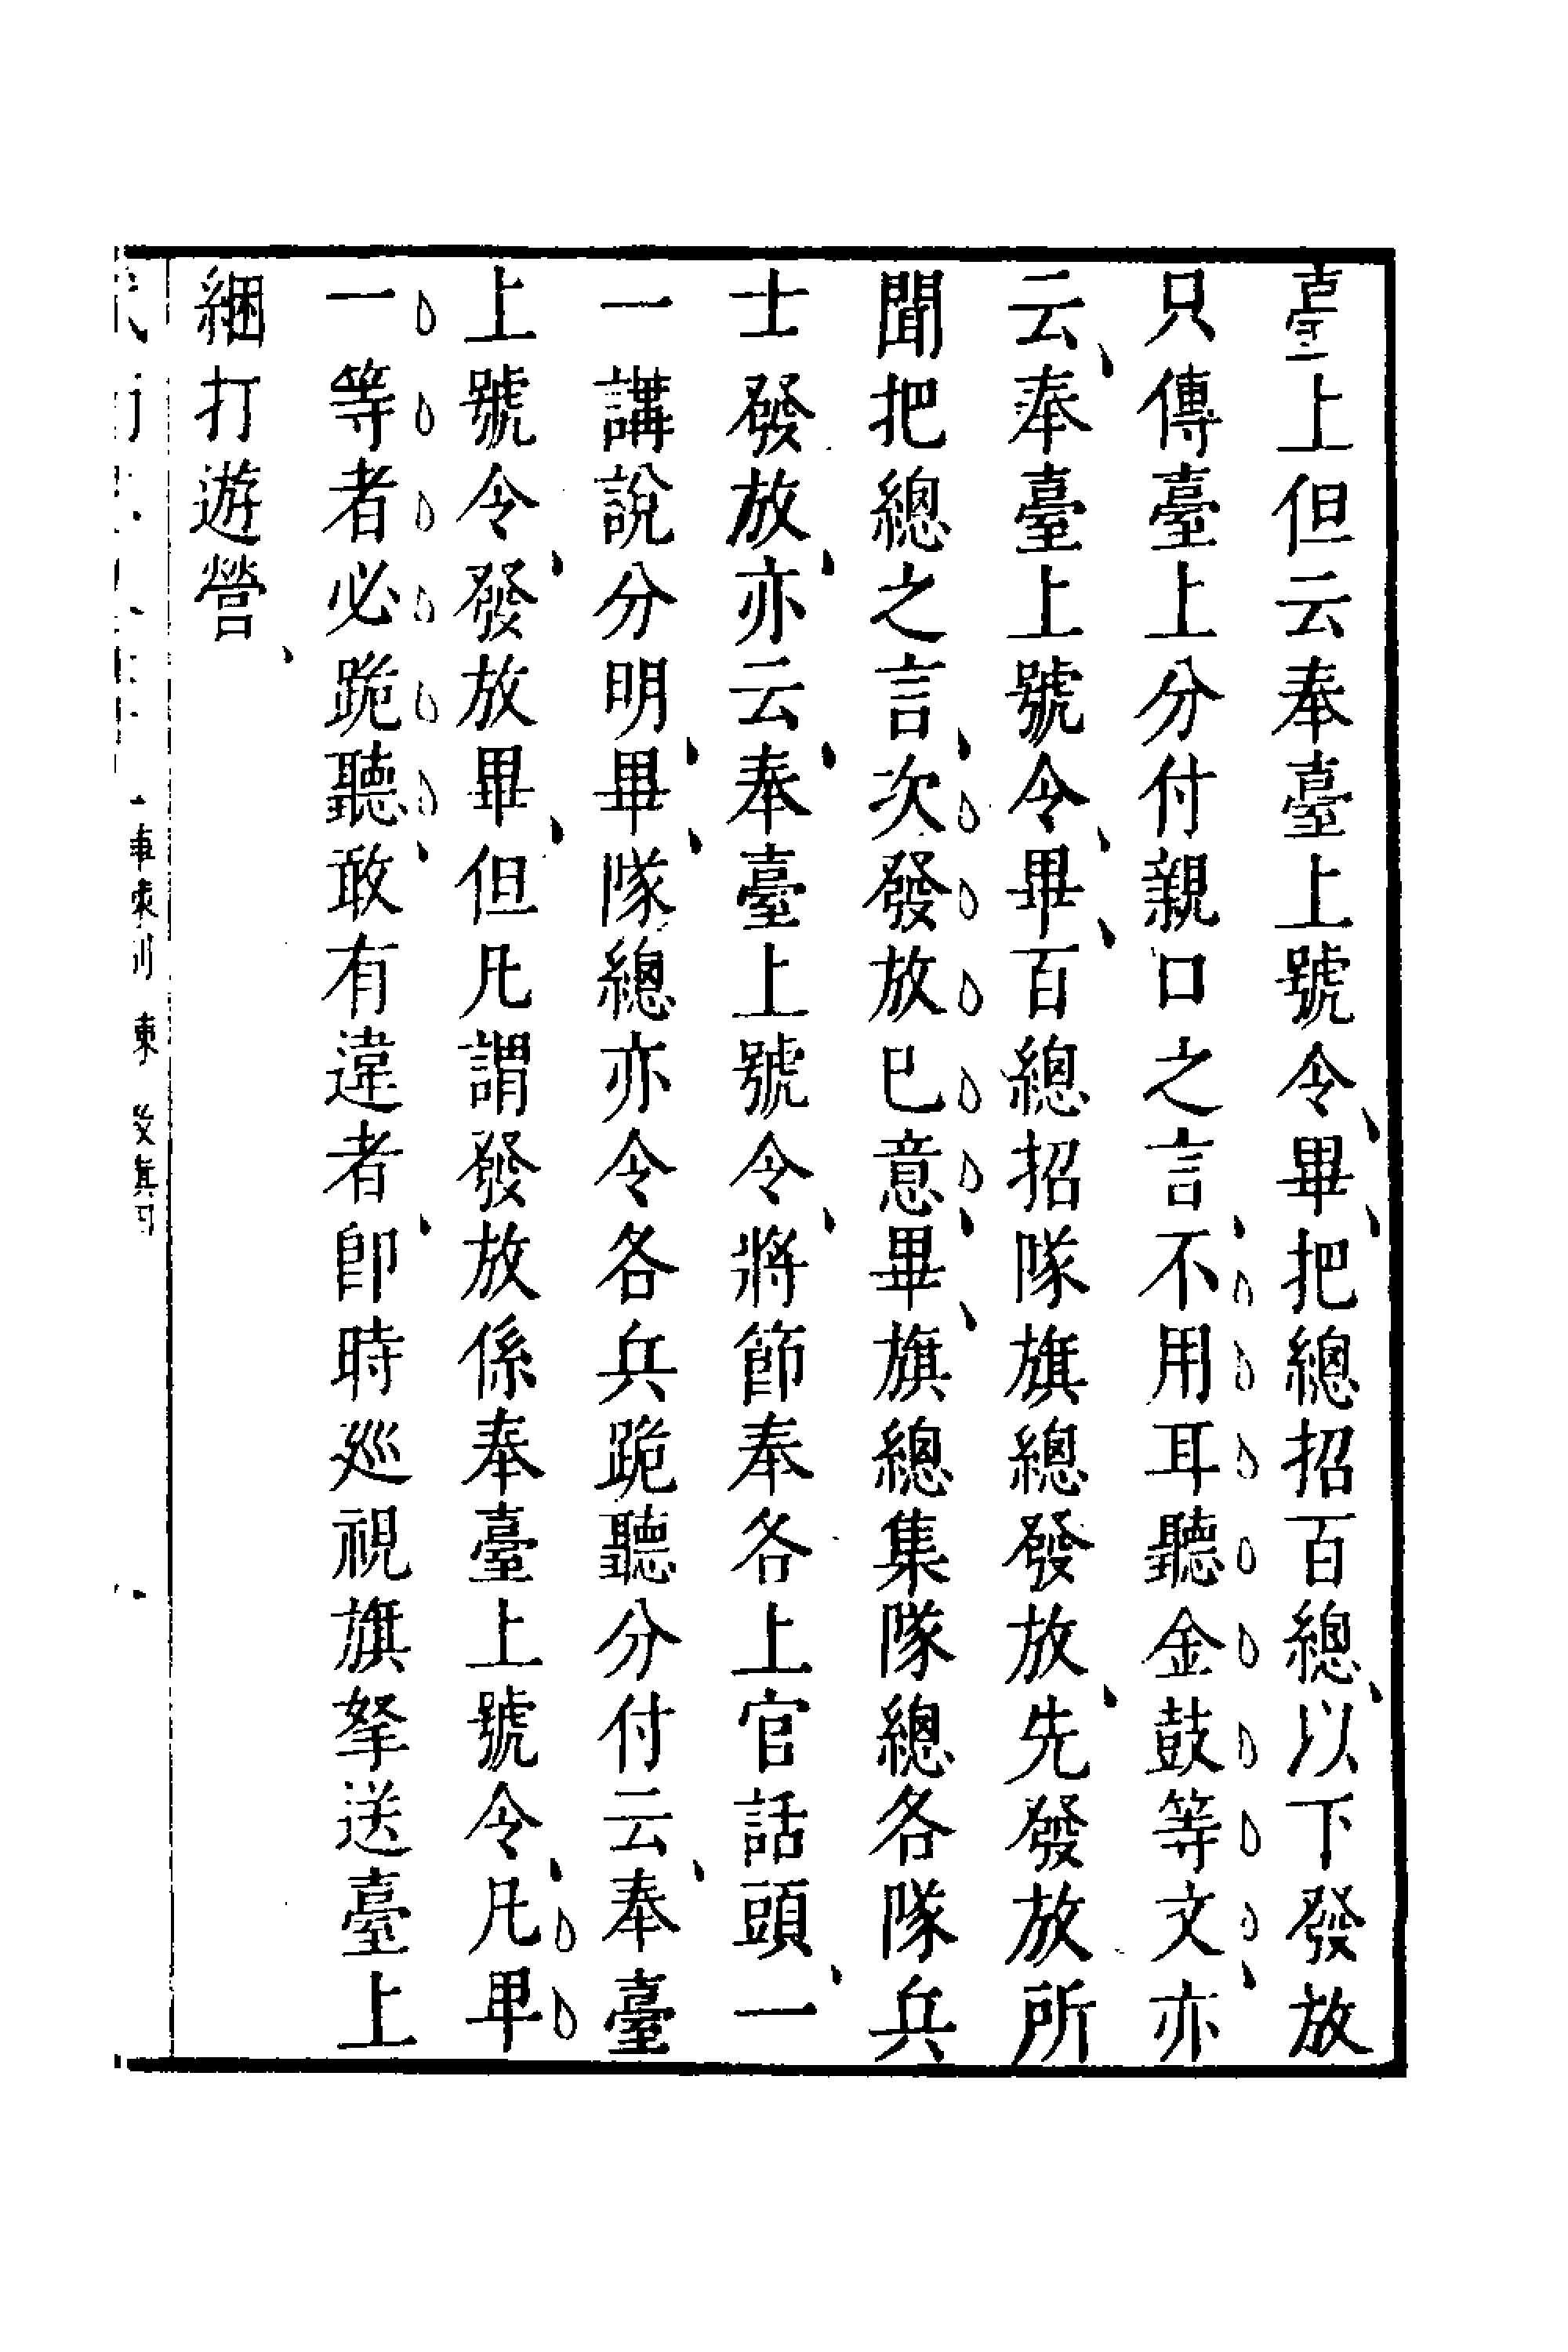 臺上但云奉臺上號令畢把總招百總以下發放
只傳臺上分付親口之言不用耳聽金鼓等文亦
云奉臺上號令畢百總招隊旗總發放先發放所
聞把總之言次發放已意畢旗總集隊總各隊兵
士發放亦云奉臺上號令將節奉各上官話頭一
一講說分明畢隊總亦令各兵跪聽分付云奉臺
上號令發放畢但凡謂發放係奉臺上號令凡卑
一等者必跪聽敢有違者卽時廵視旗拏送臺上
綑打遊營